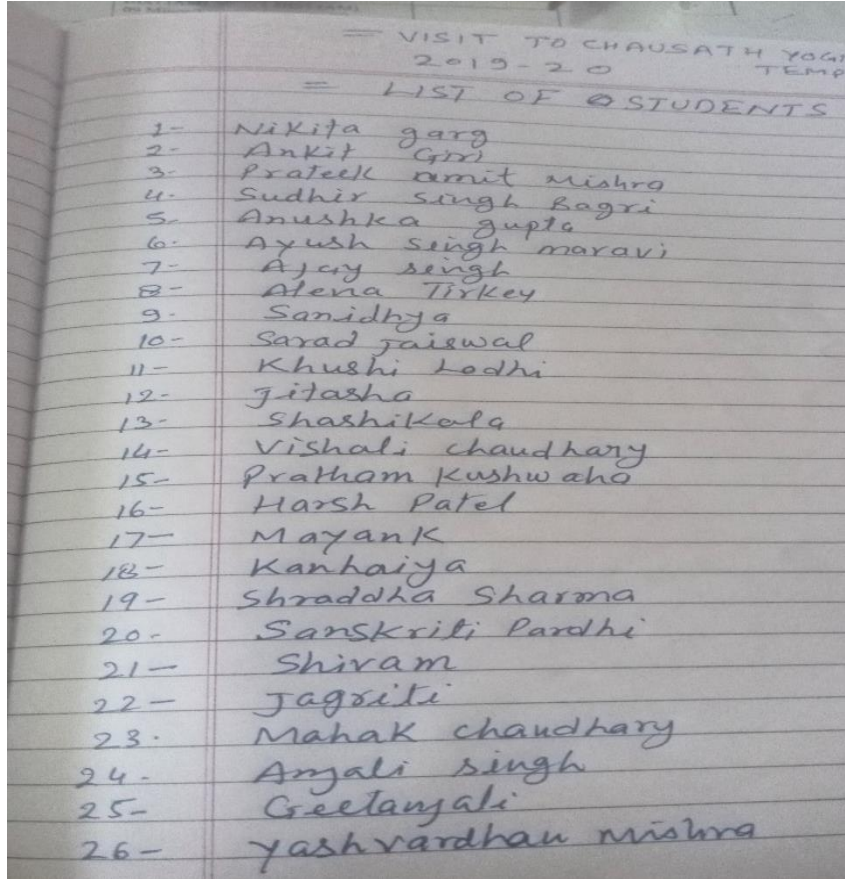 = VISIT TO CHAUSATH YOGI
2019-20 TEMP
= LIST OF STUDENTS
1- Nikita garg
2- Ankit Giri
3- Prateek amit Mishra
4- Sudhir Singh Bagri
5- Anushka gupta
6- Ayush Singh maravi
7- Ajay singh
8- Alena Tirkey
9- Sanidhya
10- Sarad jaiswal
11- Khushi Lodhi
12- Jitasha
13- Shashikala
14- Vishali chaudhary
15- Pratham Kushwaha
16- Harsh Patel
17- Mayank
18- Kanhaiya
19- Shraddha Sharma
20- Sanskriti Pardhi
21- Shivam
22- Jagriti
23. Mahak chaudhary
24- Anjali singh
25- Geetanjali
26- Yashvardhan Mishra